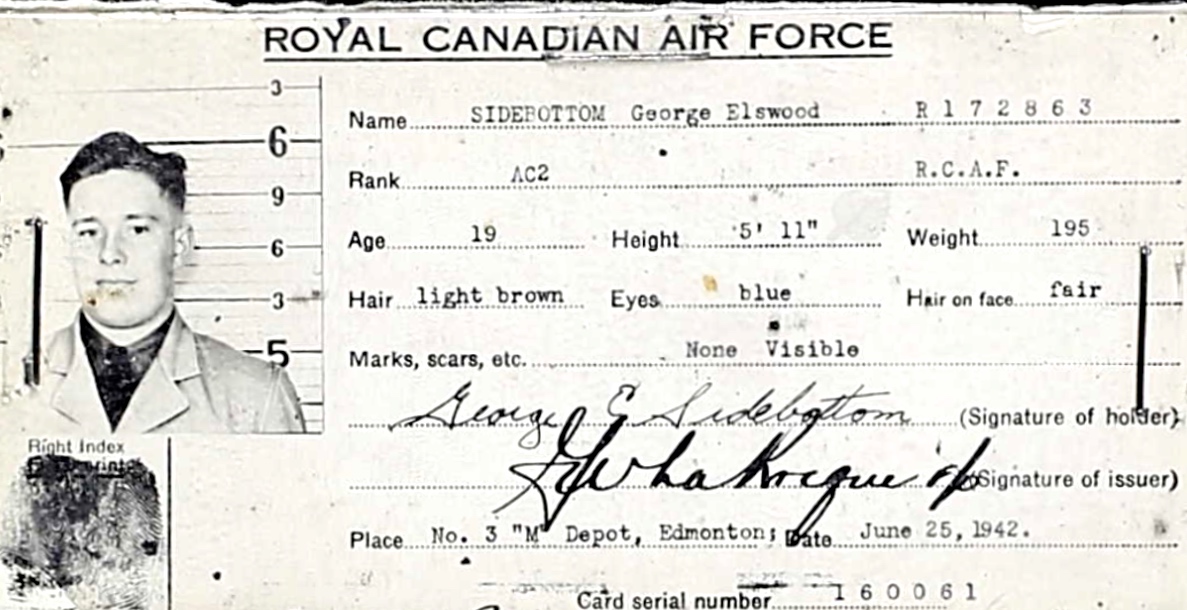 ROYAL CANADIAN AIR FORCE
3
6
9
6
3
5
Name SIDEBOTTOM George Elswood R172863
Rank AC2 R.C.A.F.
Age 19 Height 5' 11" Weight 195
Hair light brown Eyes blue Hair on face fair
Marks, scars, etc. None Visible
George E Sidebottom (Signature of holder)
(Signature of issuer)
Right Index
Place No. 3 "M" Depot, Edmonton; Date June 25, 1942.
Card serial number 160061